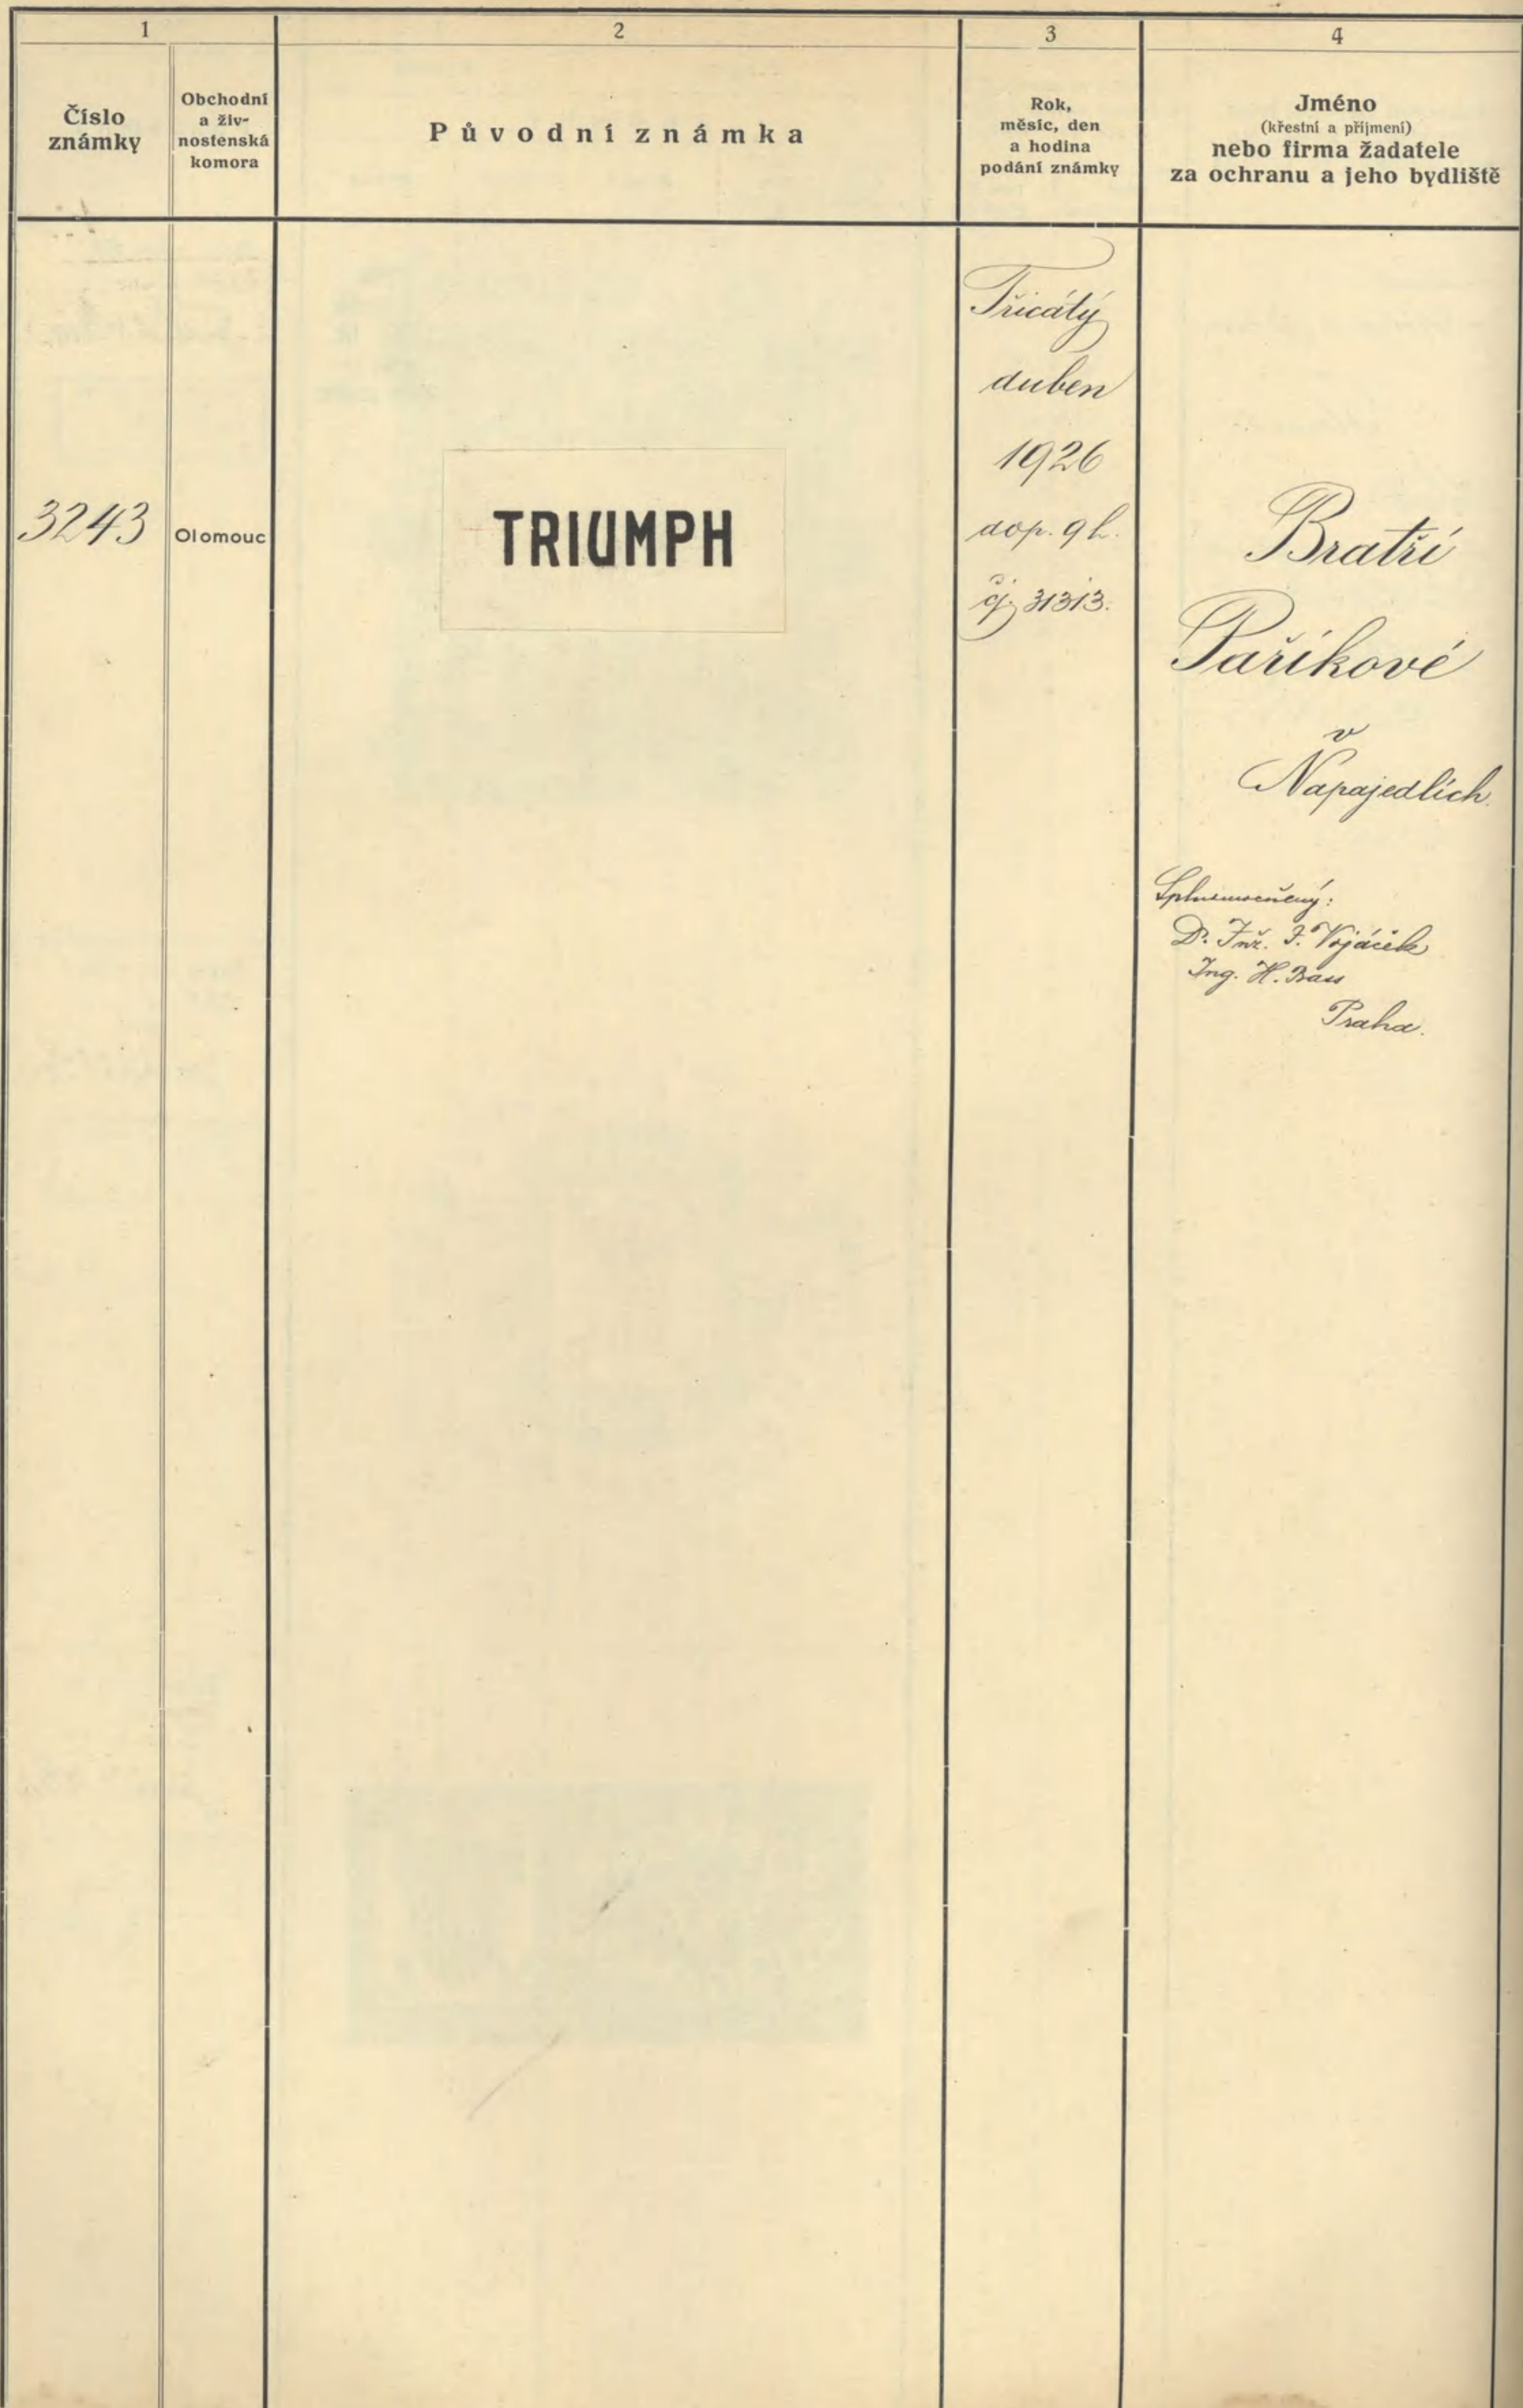 1
2
3
4
Číslo
známky
Obchodní
a živ-
nostenská
komora
Původní známka
Rok,
měsíc, den
a hodina
podání známky
Jméno
(křestní a příjmení)
nebo firma žadatele
za ochranu a jeho bydliště
3243
Olomouc
TRIUMPH
Třicátý
duben
1926
dop. 9 h.
čj. 31313.
Bratří
Paříkové
v
Napajedlích.
Splnomocněný:
Dr. Inž. J. Vojáček
Ing. H. Bass
Praha.